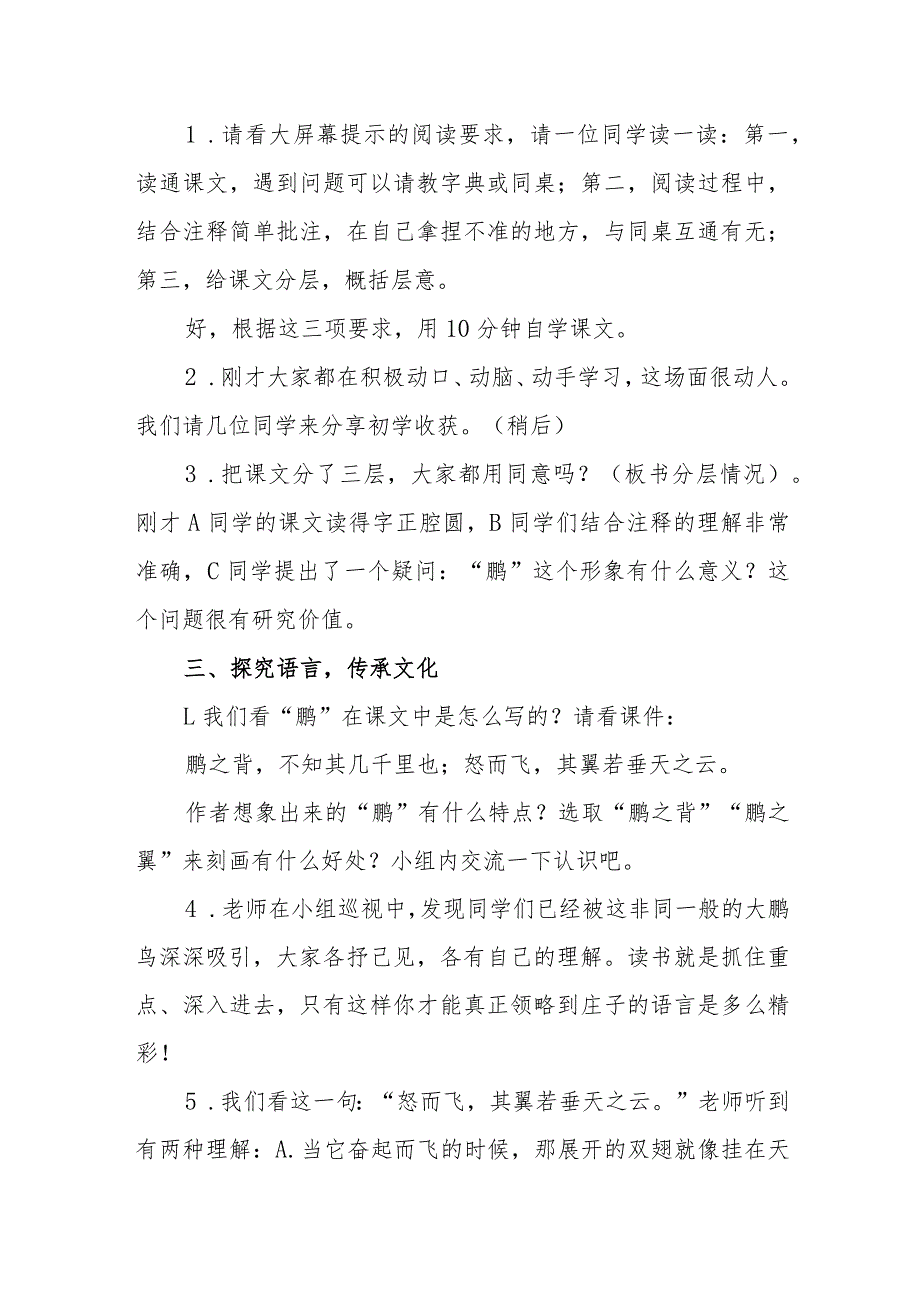 1．请看大屏幕提示的阅读要求，请一位同学读一读：第一，
读通课文，遇到问题可以请教字典或同桌；第二，阅读过程中，
结合注释简单批注，在自己拿捏不准的地方，与同桌互通有无；
第三，给课文分层，概括层意。
好，根据这三项要求，用10分钟自学课文。
2．刚才大家都在积极动口、动脑、动手学习，这场面很动人。
我们请几位同学来分享初学收获。（稍后）
3．把课文分了三层，大家都用同意吗？（板书分层情况）。
刚才A同学的课文读得字正腔圆，B同学们结合注释的理解非常
准确，C同学提出了一个疑问：“鹏”这个形象有什么意义？这
个问题很有研究价值。
三、探究语言，传承文化
L我们看“鹏”在课文中是怎么写的？请看课件：
鹏之背，不知其几千里也；怒而飞，其翼若垂天之云。
作者想象出来的“鹏”有什么特点？选取“鹏之背”“鹏之
翼”来刻画有什么好处？小组内交流一下认识吧。
4．老师在小组巡视中，发现同学们已经被这非同一般的大鹏
鸟深深吸引，大家各抒己见，各有自己的理解。读书就是抓住重
点、深入进去，只有这样你才能真正领略到庄子的语言是多么精
彩！
5．我们看这一句：“怒而飞，其翼若垂天之云。”老师听到
有两种理解：A.当它奋起而飞的时候，那展开的双翅就像挂在天